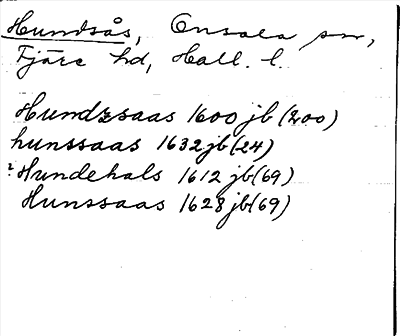 Hundsås, Onsala sn,
Fjäre hd, Hall. l.
Hundzsaas 1600 jb (200)
hunssaas 1632 jb (24)
? Hundehals 1612 jb (69)
Hunssaas 1628 jb (69)